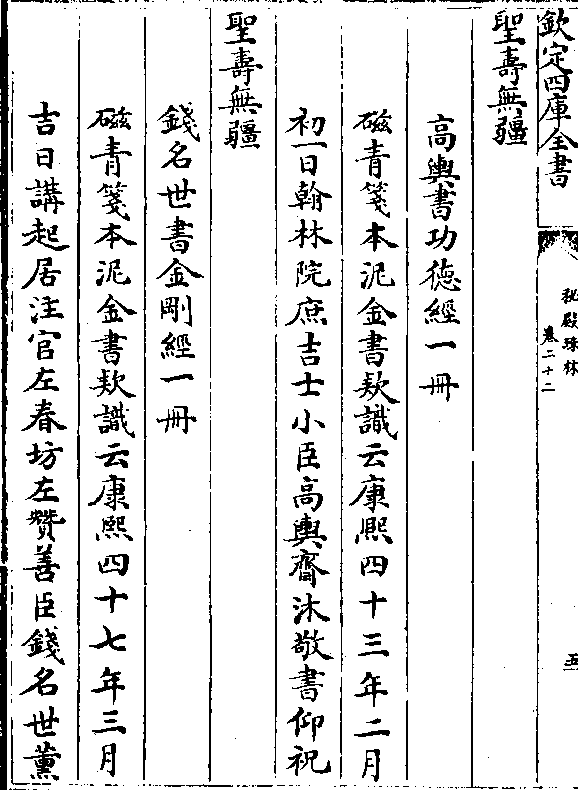 欽定四庫全書
祕殿珠林
卷二十二
五
聖壽無疆
高輿書功德經一冊
磁青箋本泥金書欵識云康熙四十三年二月
初一日翰林院庶吉士小臣高輿齋沐敬書仰祝
聖壽無疆
錢名世書金剛經一冊
磁青箋本泥金書欵識云康熙四十七年三月
吉日講起居注官左春坊左贊善臣錢名世薰